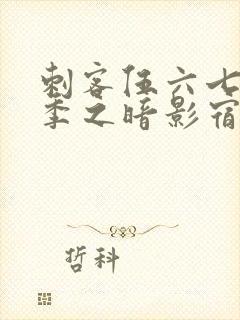 刺客伍六七
季之暗影宿
哲科